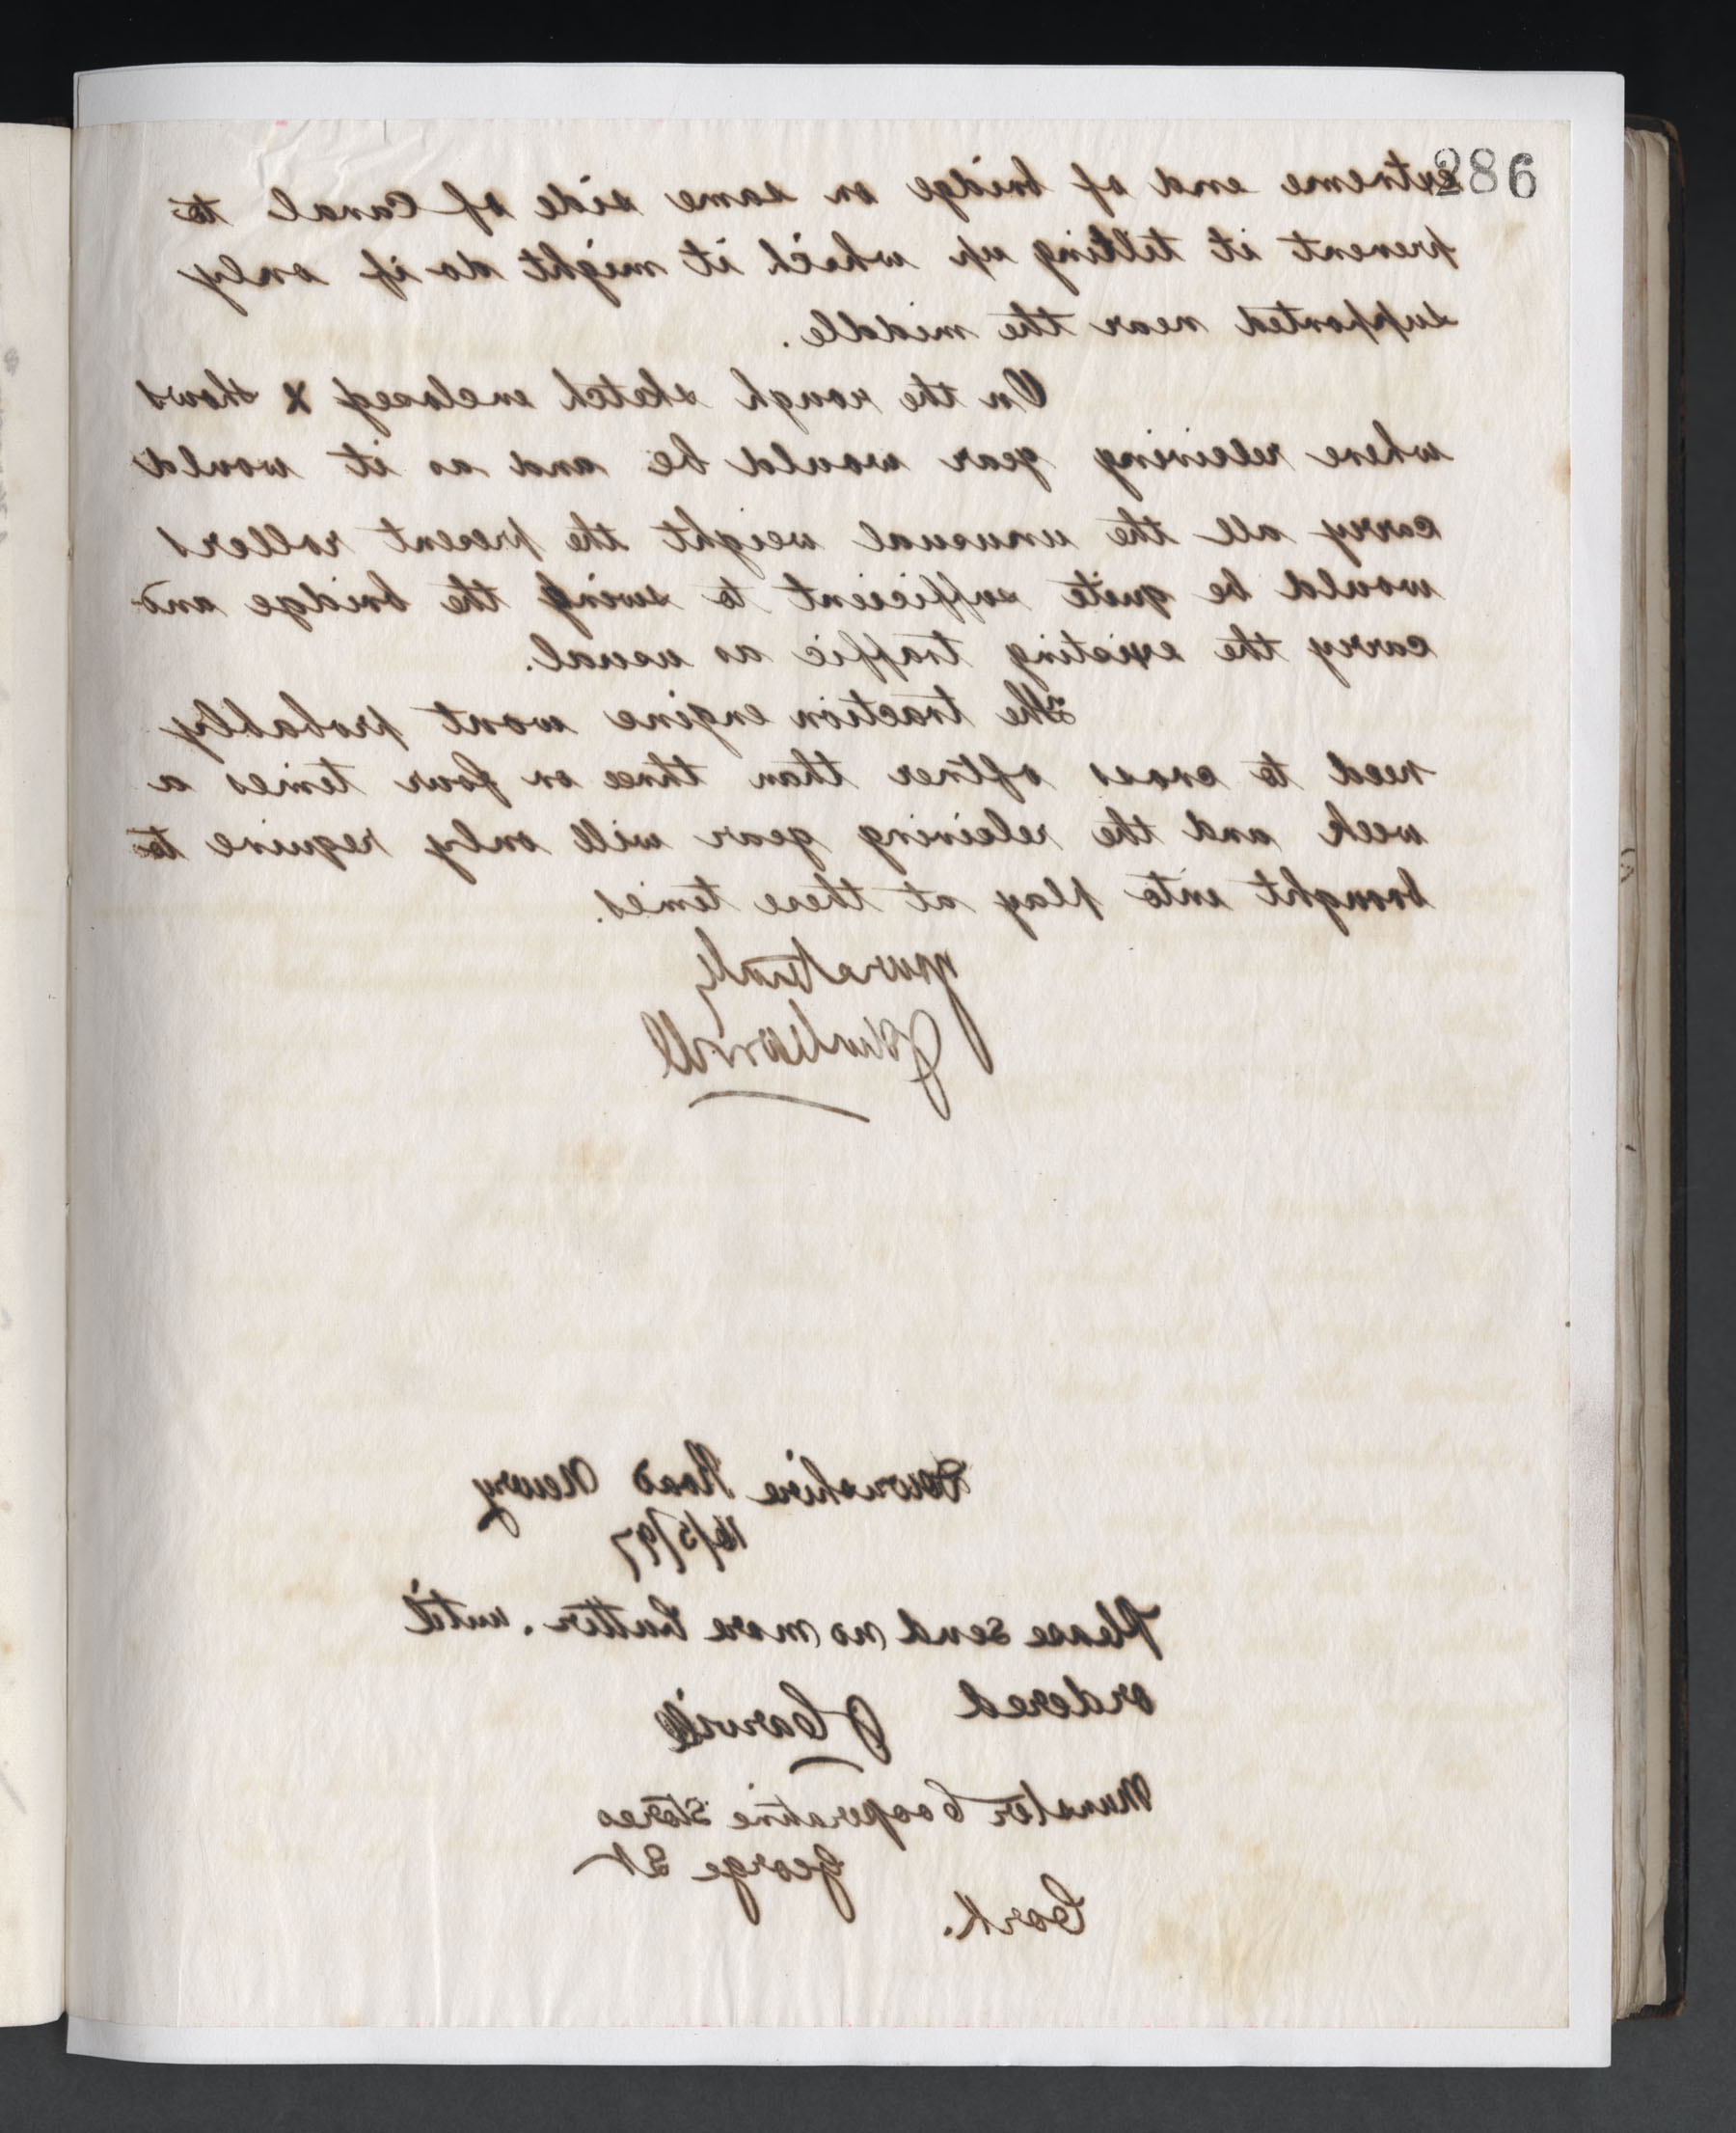 286
extreme end of bridge on same side of Canal to
prevent it tilting up which it might do if only
supported near the middle.
On the rough sketch enclosed x shows
where releiving gear would be and as it would
carry all the unusual weight the present rollers
would be quite sufficient to swing the bridge and
carry the existing traffic as usual.
The traction engine wont probably
need to cross oftner than three or four times a
week and the releiving gear will only require to
brought into play at these times.
yours truly
Downshire Road Newry
16/5/97
Please send no more butter. until
ordered J Carvill
Munster Cooperative Stores
George St
Cork.